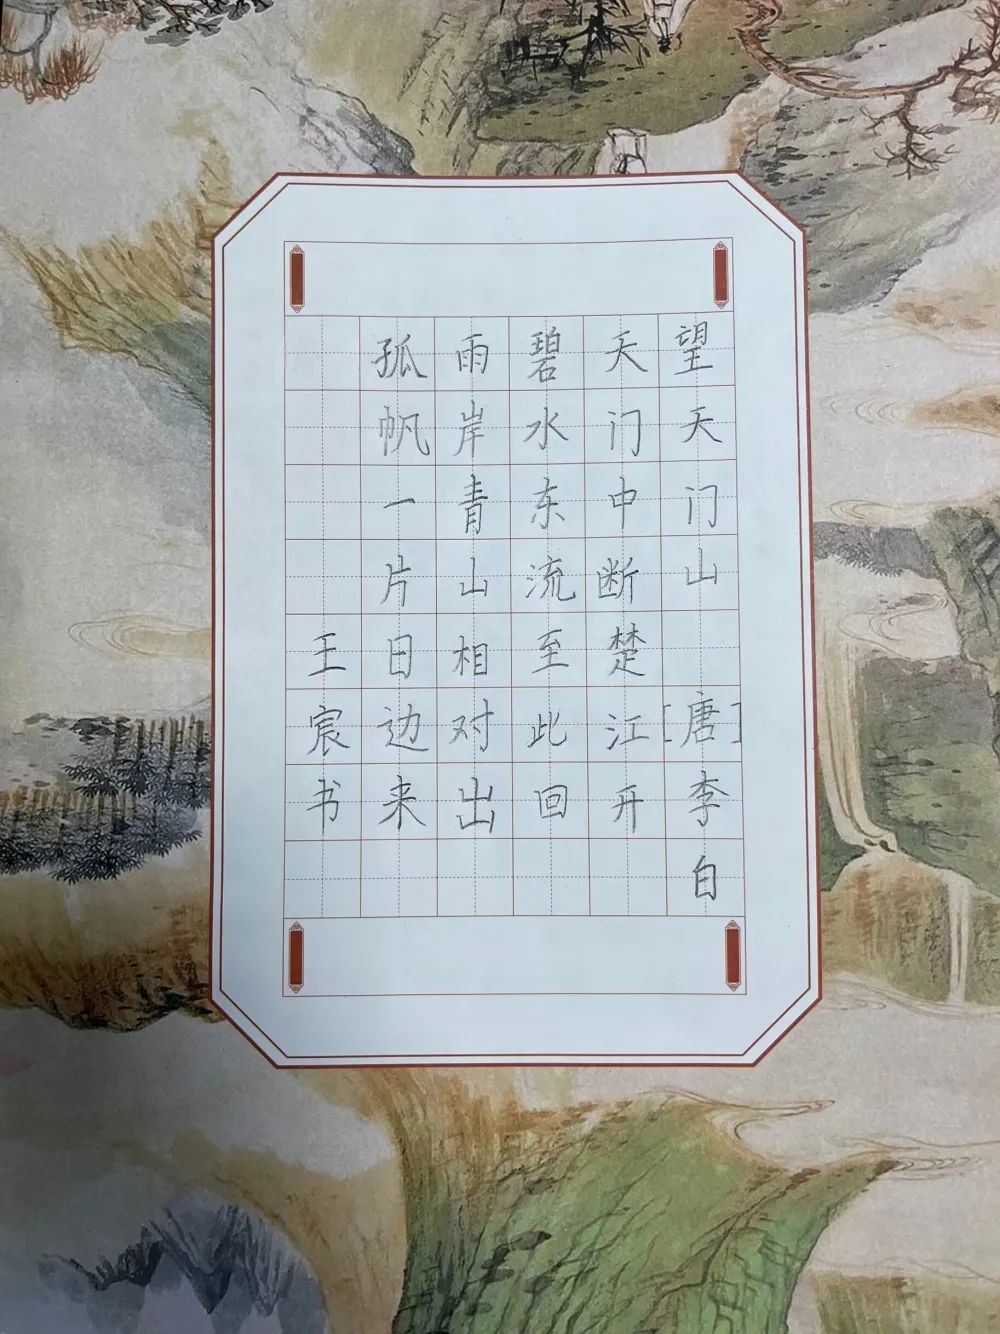 望天门山 [唐]李白
天门中断楚江开
碧水东流至此回
雨岸青山相对出
孤帆一片日边来
王宸书